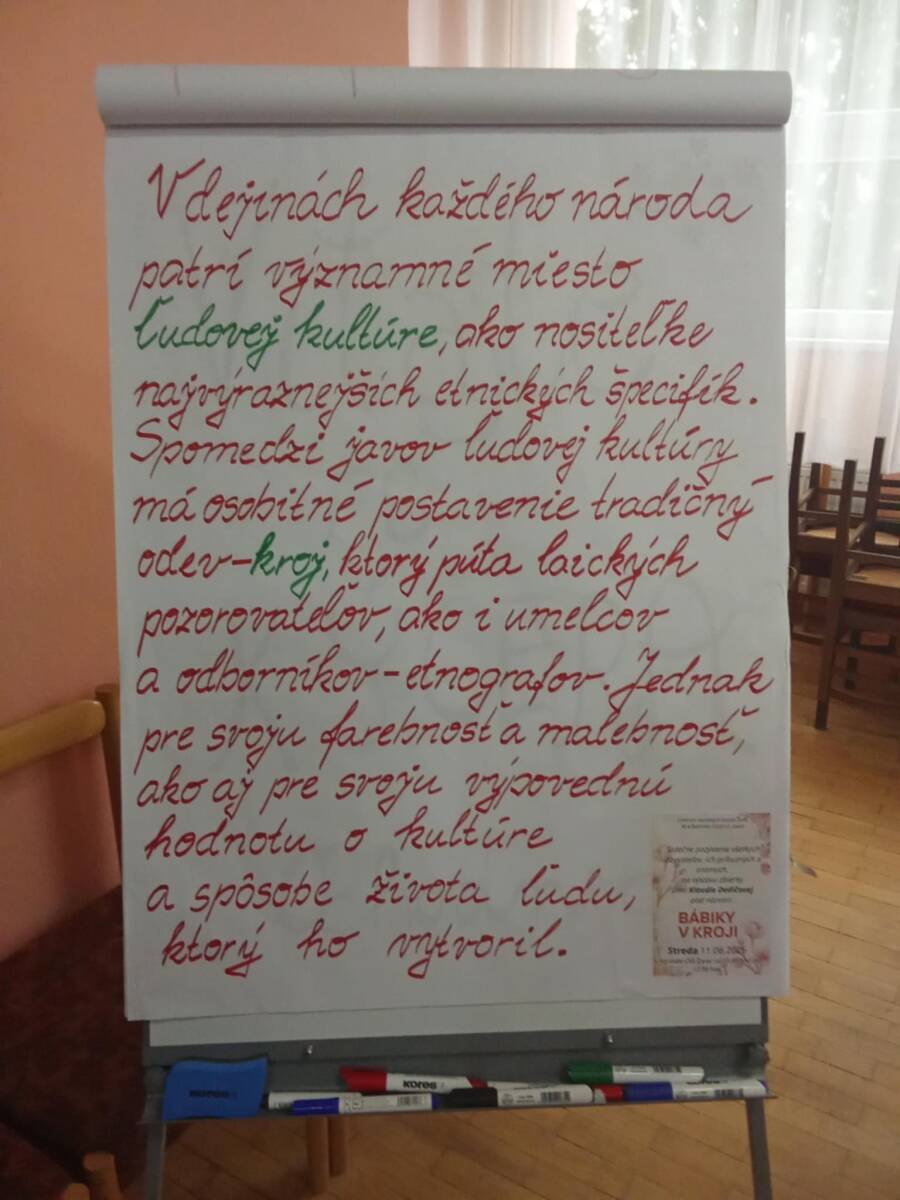 V dejinách každého národa
patrí významné miesto
ľudovej kultúre, ako nositeľke
najvýraznejších etnických špecifík.
Spomedzi javov ľudovej kultúry
má osobitné postavenie tradičný
odev-kroj, ktorý púta laických
pozorovateľov, ako i umelcov
a odborníkov-etnografov. Jednak
pre svoju farebnosť a malebnosť,
ako aj pre svoju výpovednú
hodnotu o kultúre
a spôsobe života ľudu,
ktorý ho vytvoril.
Srdečne pozývame všetkých
obyvateľov, ich príbuzných a
známych,
na výstavu zbierky
Klaudie Dedičovej
pod názvom
BÁBIKY
V KROJI
Streda 11.06.2025
KORES
kores